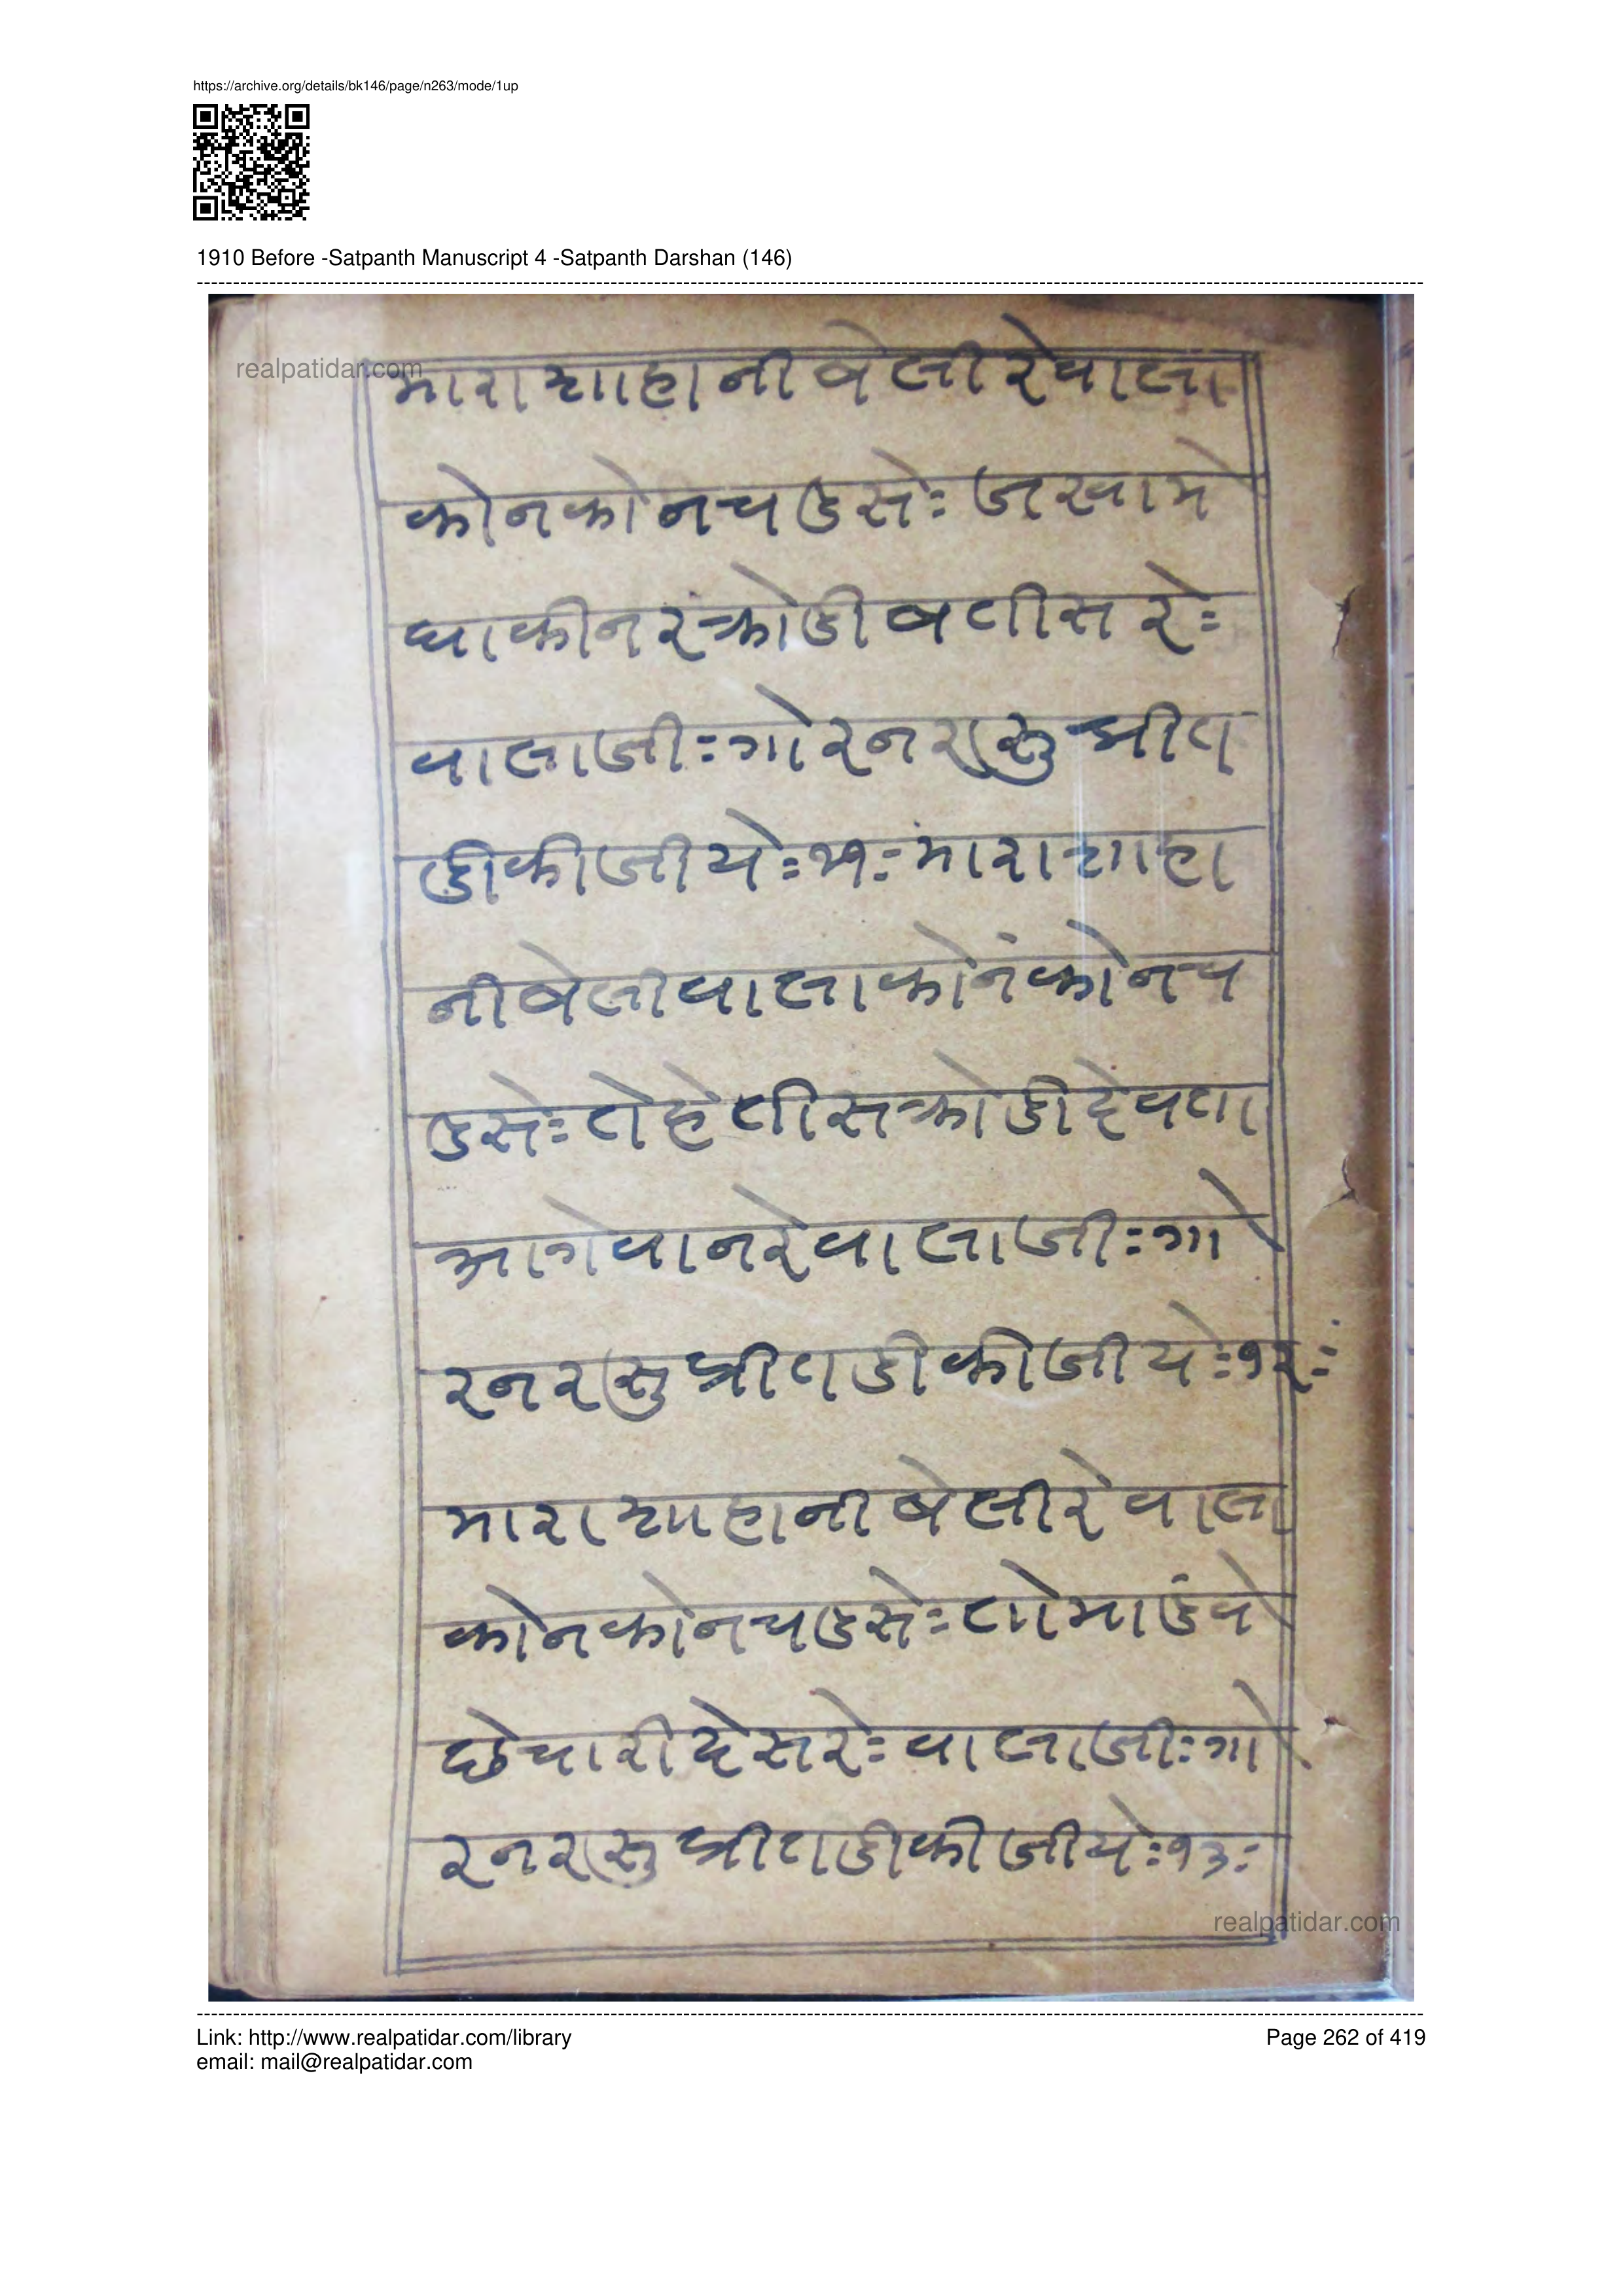 https://archive.org/details/bk146/page/n263/mode/1up
1910 Before -Satpanth Manuscript 4 -Satpanth Darshan (146)
realpatidar.com
मारा शाहा नी बेली रे वाला
कोन कोन चडसेः जखा मे
घा की नर क्रोडी बतीस रेः
वालाजीः गोर नर सु प्रीत
डी कीजीयेः ११ः मारा शाहा
नी बेली वाला कोनं कोन च
डसेः तेहेतीस क्रोडी देवता
आगेवान रे वालाजीः गो
र नर सु प्रीतडी कीजीयेः १२ः
मारा शाहा नी बेली रे वाला
कोन कोन चडसेः तो मांडवे
छे चारी देस रेः वालाजीः गो
र नर सु प्रीतडी कीजीयेः १३ः
realpatidar.com
Link: http://www.realpatidar.com/library
email: mail@realpatidar.com
Page 262 of 419